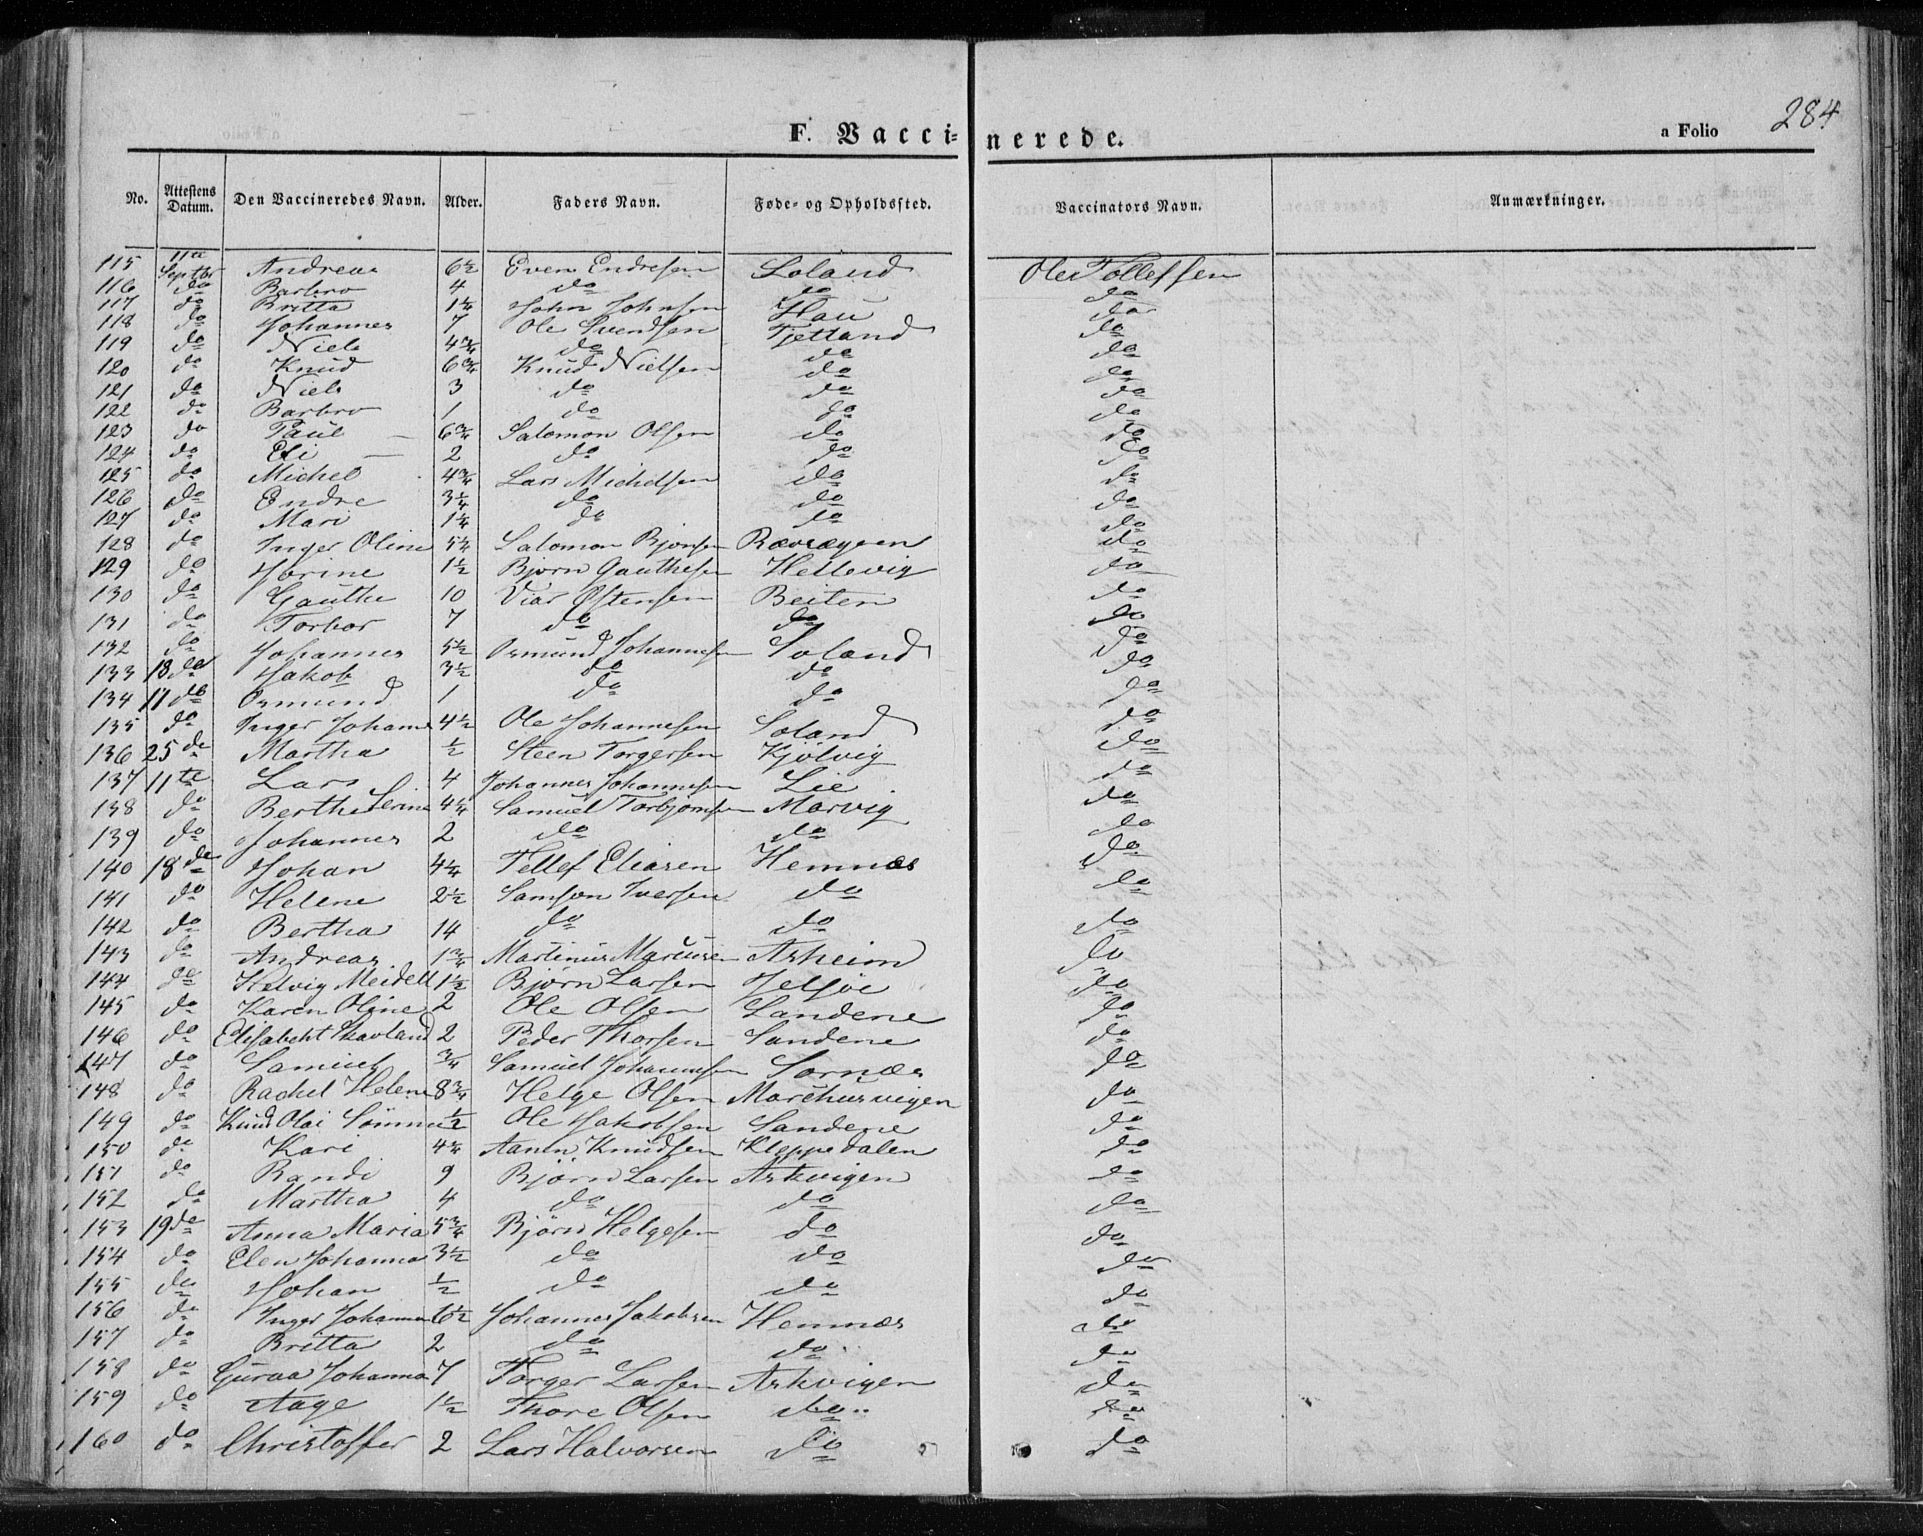 284
F. Vaccinerede. a Folio
No. Attestens Datum. Den Vaccineredes Navn. Alder. Faders Navn. Føde- og Opholdssted. Vaccinators Navn. Anmærkninger.
115 11te Septbr Andreas 6½ Even Endresen Soland Ole Tollefsen
116 do Barbro 4 do do do
117 do Britta 1¼ John Johnsen Hau do
118 do Johannes 7 Ole Svendsen Tjetland do
119 do Niels 4¾ do do do
120 do Knud 6¾ Knud Nielsen do do
121 do Niels 3 do do do
122 do Barbro 1 do do do
123 do Paul 6¾ Salomon Olsen do do
124 do Eli 2 do do do
125 do Michel 4¾ Lars Michelsen do do
126 do Endre 3¼ do do do
127 do Mari 1¼ do do do
128 do Inger Oline 5¼ Salomon Bjonsen do
129 do Hørine 1½ Bjørn Gauthesen Hellevig do
130 do Gauthe 10 Viar Østensen Beiten do
131 do Torbor 7 do do do
132 do Johannes 5½ Ormund Johannesen Soland do
133 18de Jakob 3½ do do do
134 11te Ormund 1 do do do
135 do Inger Johanne 4½ Ole Johannesen Soland do
136 25de Martha ½ Steen Torgersen Kjølvig do
137 11te Lars 4 Johannes Johannesen Lie do
138 do Berthe Serine 4¼ Samuel Torbjørnsen Marvig do
139 do Johannes 2 do do do
140 18de Johan 4¼ Tellef Eliasen Hemnæs do
141 do Helene 2½ Samson Iversen do do
142 do Bertha 14 do do do
143 do Andreas 1¾ Martinus Marcusen Asheim do
144 do Helvig Meidell 1½ Bjørn Larsen Jelsøe do
145 do Karen Oline 2 Ole Olsen Sandene do
146 do Elisabeht Havland 2 Peder Thorsen Sandene do
147 do Samuel ¾ Samuel Johannesen Sornæs do
148 do Rachel Helene 8¾ Helge Olsen Marthusvigen do
149 do Knud Olai ½ Ole Jakobsen Sandene do
150 do Kari 4¼ Aanen Knudsen Kleppedalen do
151 do Randi 9 Bjørn Larsen Askvigen do
152 do Martha 4 do do do
153 19de Anna Maria 5¾ Bjørn Helgesen do do
154 do Elen Johanna 3½ do do do
155 do Johan ½ do do do
156 do Inger Johanna 6½ Johannes Jakobsen Hemnæs do
157 do Britta 2 do do do
158 do Guroa Johanna 7 Torger Larsen Askvigen do
159 do Aage 1½ Thore Olsen do do
160 do Christoffer 2 Lars Halvorsen do do